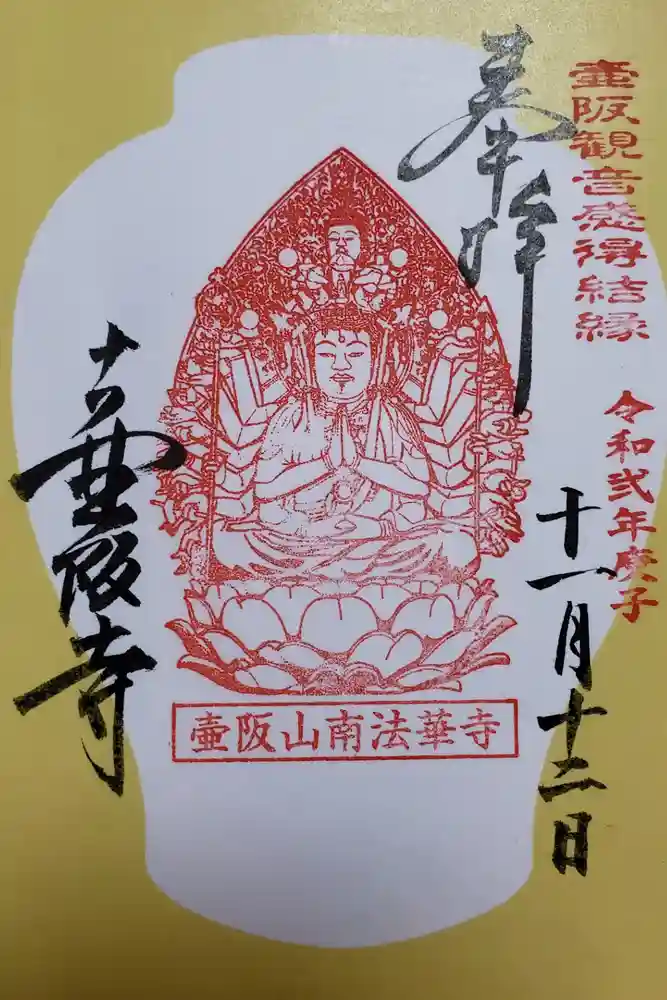 壷阪観音感得結縁
令和弐年庚子
奉拝
十一月十二日
壷阪寺
壷阪山南法華寺